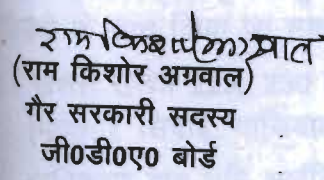 राम किशोर अग्रवाल
(राम किशोर अग्रवाल)
गैर सरकारी सदस्य
जी0डी0ए0 बोर्ड